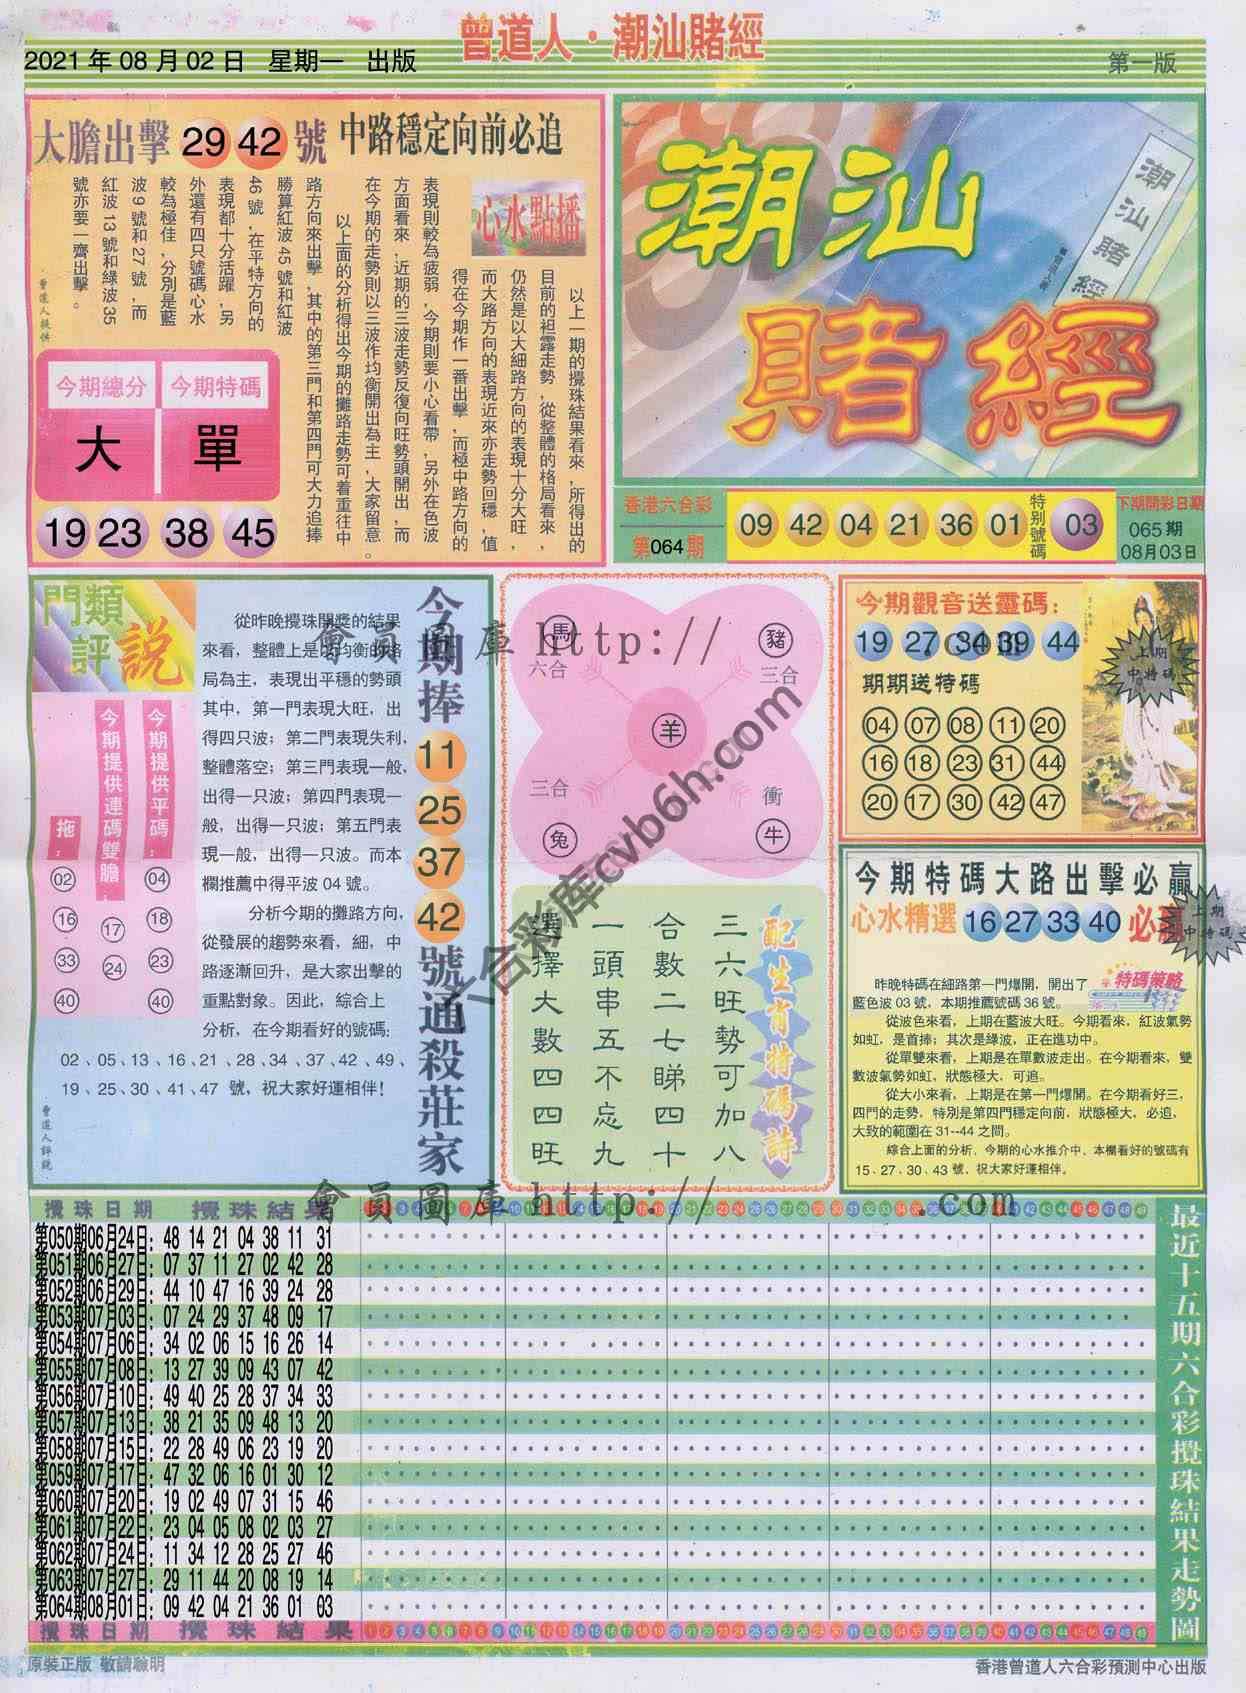 曾道人·潮汕賭經
2021年08月02日 星期一 出版
第一版
大膽出擊 29 42 號 中路穩定向前必追
心水點播
以上一期的攪珠結果看來,所得出的
目前的袒露走勢,從整體的格局看來,
仍然是以大細路方向的表現十分大旺,
而大路方向的表現近來亦走勢回穩,值
得在今期作一番出擊,而極中路方向的
表現則較為疲弱,今期則要小心看帶,另外在色波
方面看來,近期的三波走勢反復向旺勢頭開出,而
在今期的走勢則以三波作均衡開出為主,大家留意。
以上面的分析得出今期的攤路走勢可着重往中
路方向來出擊,其中的第三門和第四門可大力追捧
勝算紅波45號和紅波
46號,在平特方向的
表現都十分活躍,另
外還有四只號碼心水
較為極佳,分別是藍
波9號和27號,而
紅波13號和綠波35
號亦要一齊出擊。
·曾道人提供
今期總分 今期特碼
大 單
19 23 38 45
潮汕賭經
潮汕
賭經
香港六合彩
第064期
09 42 04 21 36 01
特别號碼
03
下期開彩日期
065期
08月03日
門類評說
今期提供平碼:
04
18
23
40
今期提供連碼雙膽:
17
24
拖:
02
16
33
40
從昨晚攪珠開獎的結果
來看,整體上是以均衡的格
局為主,表現出平穩的勢頭
其中,第一門表現大旺,出
得四只波;第二門表現失利,
整體落空;第三門表現一般,
出得一只波;第四門表現一
般,出得一只波;第五門表
現一般,出得一只波。而本
欄推薦中得平波04號。
分析今期的攤路方向,
從發展的趨勢來看,細,中
路逐漸回升,是大家出擊的
重點對象。因此,綜合上
分析,在今期看好的號碼;
02、05、13、16、21、28、34、37、42、49、
19、25、30、41、47 號,祝大家好運相伴!
曾道人評説
今期捧
11
25
37
42
號通殺莊家
馬
六合
豬
三合
羊
三合
兔
衝
牛
配生肖特碼詩
三六旺勢可加八
合數二七睇四十
一頭串五不忘九
選擇大數四四旺
今期觀音送靈碼:
19 27 34 39 44
期期送特碼
04 07 08 11 20
16 18 23 31 44
20 17 30 42 47
上期
中特碼
今期特碼大路出擊必贏
心水精選 16 27 33 40 必贏
上期
中特碼
特碼策略
昨晚特碼在細路第一門爆開,開出了
藍色波03號,本期推薦號碼36號。
從波色來看,上期在藍波大旺。今期看來,紅波氣勢
如虹,是首捧;其次是綠波,正在進功中。
從單雙來看,上期是在單數波走出。在今期看來,雙
數波氣勢如虹,狀態極大,可追。
從大小來看,上期是在第一門爆開。在今期看好三,
四門的走勢,特別是第四門穩定向前,狀態極大,必追,
大致的範圍在31--44之間。
綜合上面的分析,今期的心水推介中,本欄看好的號碼有
15、27、30、43號,祝大家好運相伴。
會員圖庫 http:// .com
六合彩库cvb6h.com
會員圖庫 http:// .com
攪珠日期 攪珠結果
第050期06月24日: 48 14 21 04 38 11 31
第051期06月27日: 07 37 11 27 02 42 28
第052期06月29日: 44 10 47 16 39 24 28
第053期07月03日: 07 24 29 37 48 09 17
第054期07月06日: 34 02 06 15 16 26 14
第055期07月08日: 13 27 39 09 43 07 42
第056期07月10日: 49 40 25 28 37 34 33
第057期07月13日: 38 21 35 09 48 13 20
第058期07月15日: 22 28 49 06 23 19 20
第059期07月17日: 47 32 06 16 01 30 12
第060期07月20日: 19 02 49 07 31 15 46
第061期07月22日: 23 04 05 08 02 03 27
第062期07月24日: 11 34 12 28 25 27 46
第063期07月27日: 29 11 44 20 08 19 14
第064期08月01日: 09 42 04 21 36 01 03
攪珠日期 攪珠結果
最近十五期六合彩攪珠結果走勢圖
原裝正版 敬請瞼明
香港曾道人六合彩預測中心出版